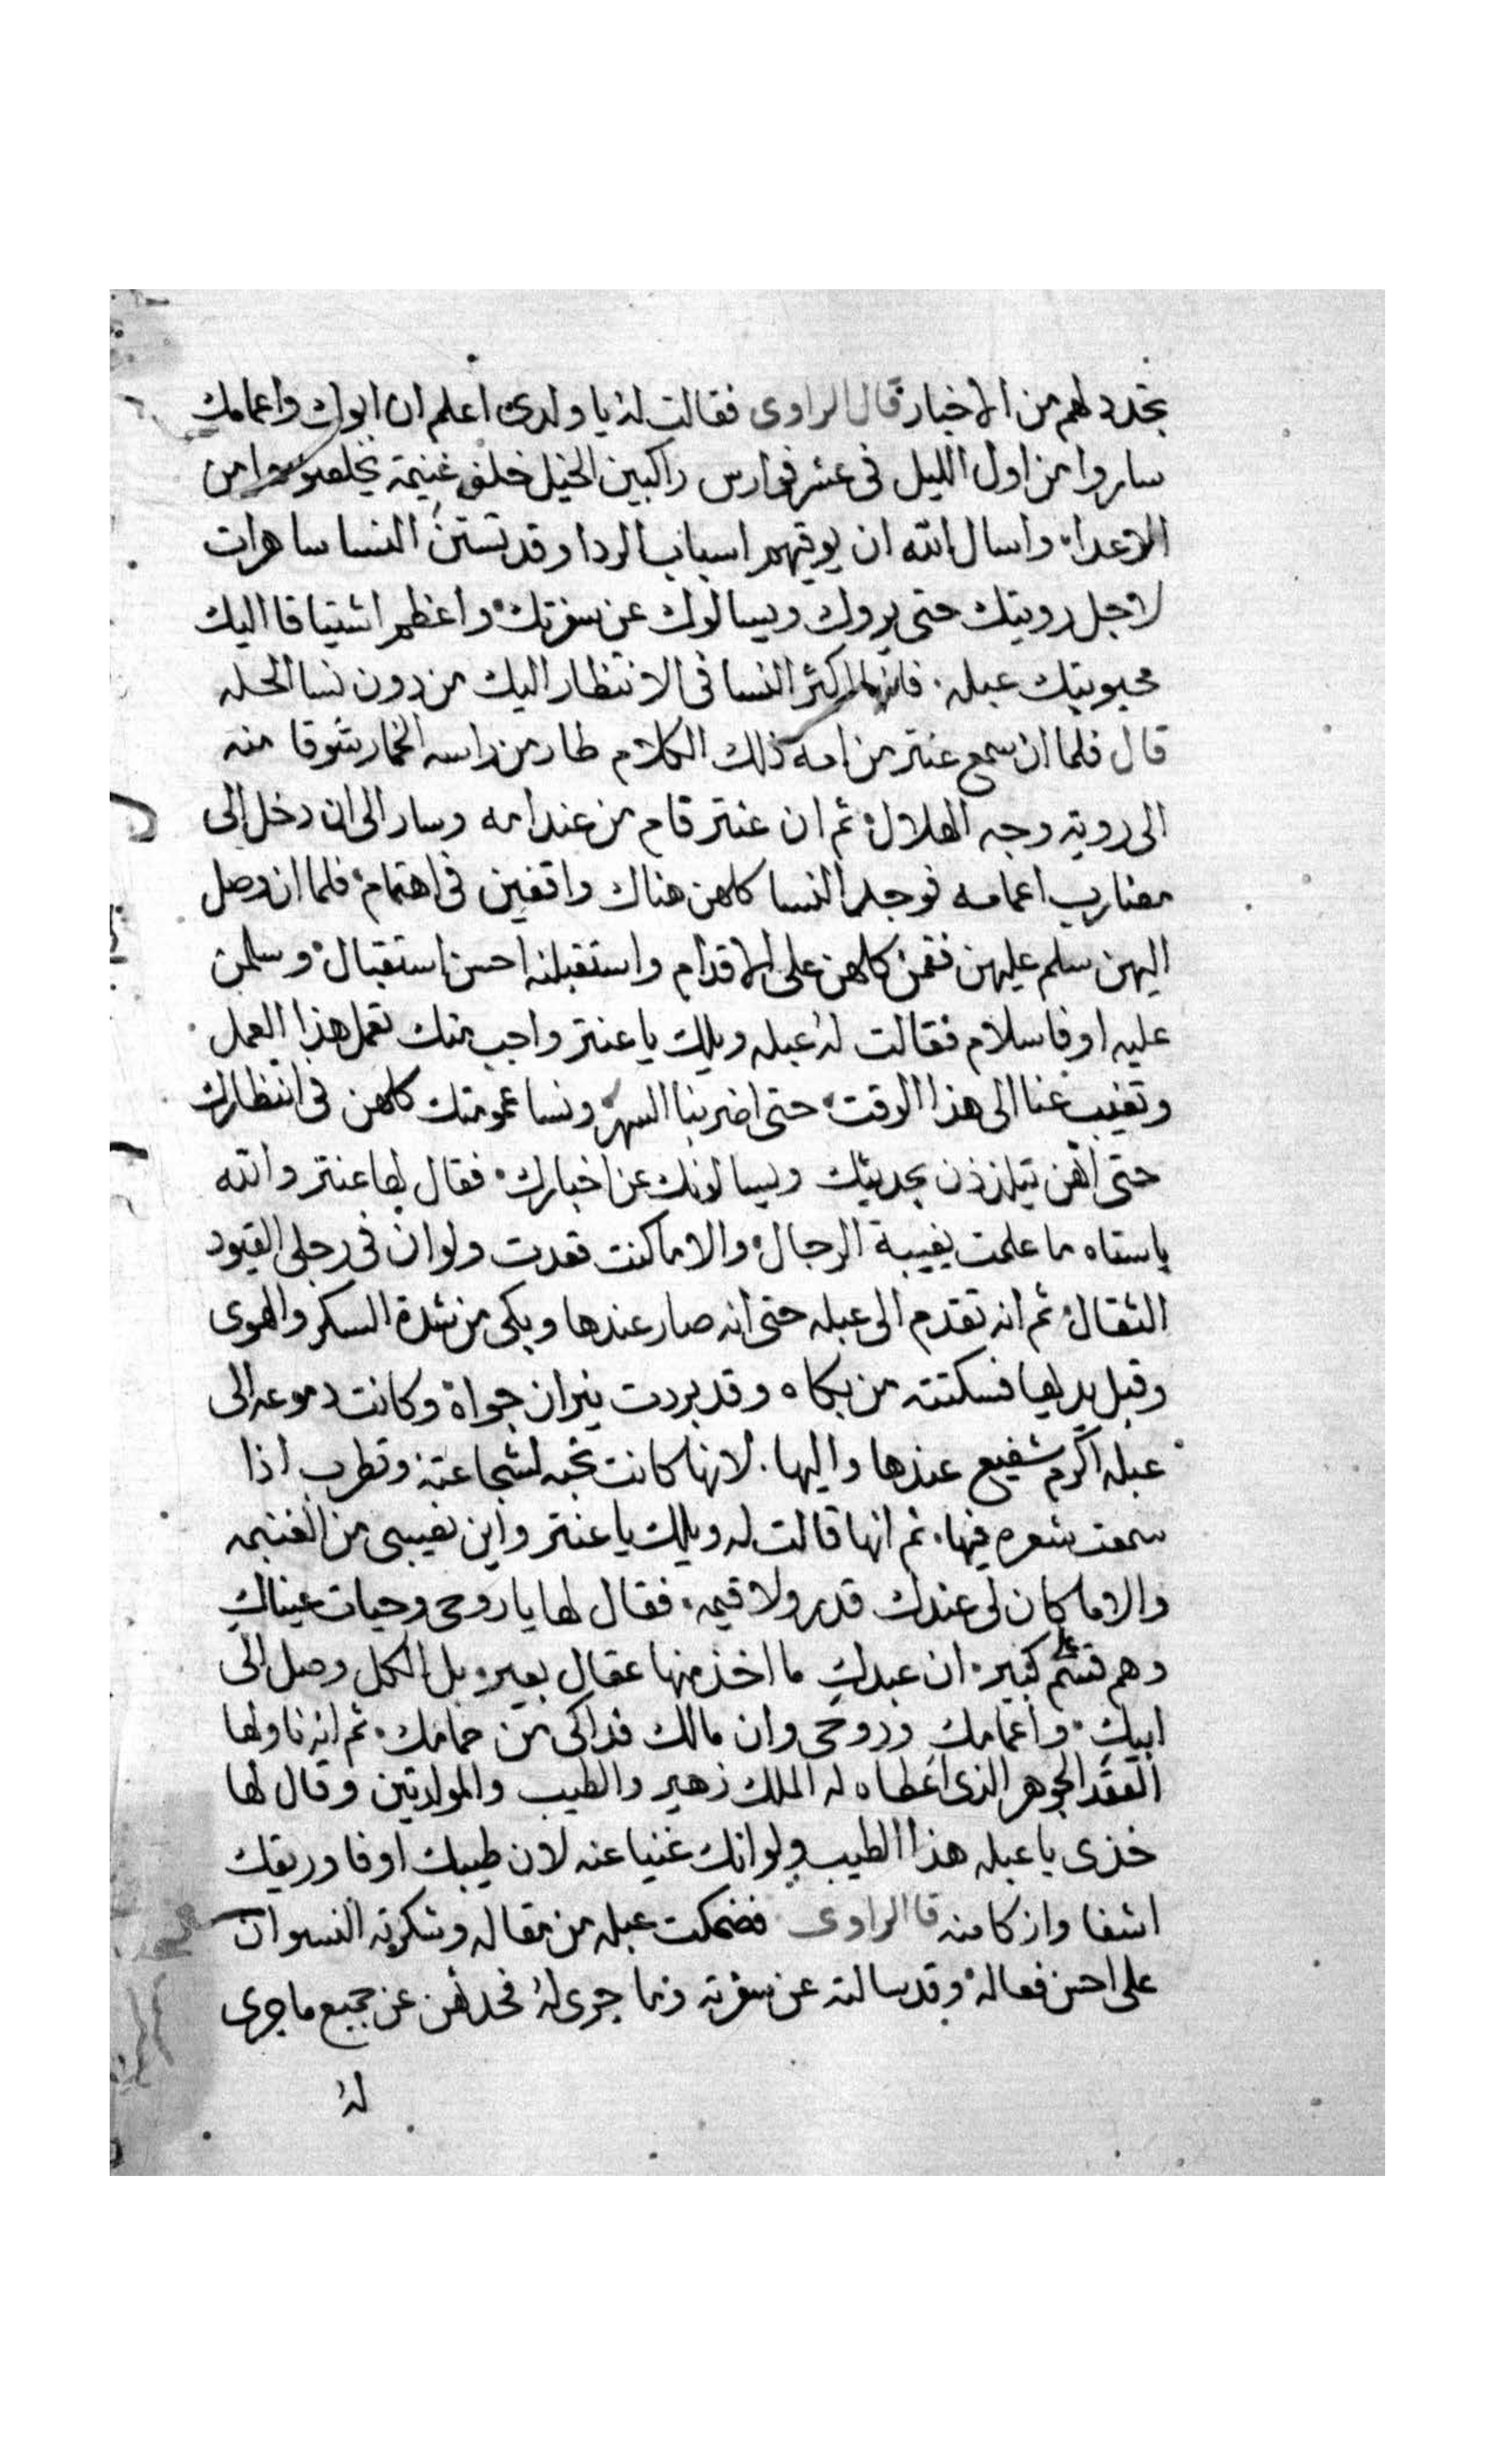 تجدد لهم من الاخبار قال الراوى فقالت له يا ولدى اعلم ان ابوك واعمامك
ساروا من اول الليل فى عشر فوارس راكبين الخيل خلف غنيمة من
الاعداء واسال الله ان يوقيهم اسباب الردا وقد النسا ساهرات
لاجل رويتك حتى يروك ويسالوك عن سفرتك واعظم اشتياقا اليك
محبوبتك عبله فانها اكثر النسا فى الانتظار اليك من دون نسا الحله
قال فلما ان سمع عنتر من امه ذلك الكلام طار من راسه الخمار شوقا منه
الى روية وجه الهلال ثم ان عنتر قام من عند امه وسار الى ان دخل الى
مضارب اعمامه فوجد النسا كلهن هناك واقفين فى اهتمام فلما ان وصل
اليهن سلم عليهن فقمن كلهن على الاقدام واستقبلنه احسن استقبال وسلمن
عليه اوفا سلام فقالت له عبله ويلك يا عنتر واجب منك تعمل هذا العمل
وتغيب عنا الى هذا الوقت حتى اضر بنا السهر ونسا عمومتك كلهن فى انتظارك
حتى انهن يتلذذن بحديثك ويسالونك عن اخبارك فقال لها عنتر والله
ياستاه ما علمت بغيبة الرجال والا ما كنت قعدت ولو ان فى رجلى القيود
الثقال ثم انه تقدم الى عبله حتى انه صار عندها وبكى من شدة السكر والهوى
وقبل يديها فسكتته من بكاه وقد بردت نيران جواه وكانت دموعه الى
عبله اكرم شفيع عندها واليها لانها كانت تحبه لشجاعته وتطرب اذا
سمعت شعره فيها ثم انها قالت له ويلك يا عنتر واين نصيبى من الغنيمه
والا ما كان لى عندك قدر ولا قيمه فقال لها يا روحى وحيات عيناك
وهم قسم كبير ان عبدك ما اخذ منها عقال بعير بل الكل وصل الى
ابيك واعمامك وروحى وان مالك فداكى من حمامك ثم انه ناولها
العقد الجوهر الذى اعطاه له الملك زهير والطيب والمولدتين وقال لها
خذى يا عبله هذا الطيب ولو انك غنيا عنه لان طيبك اوفا وريقك
اشفا وازكا منه قا الراوى فضحكت عبله من مقاله وشكرته النسوان
على احسن فعاله وقد سالته عن سفرته وما جرى له فحدثهن عن جميع ما جرى
له